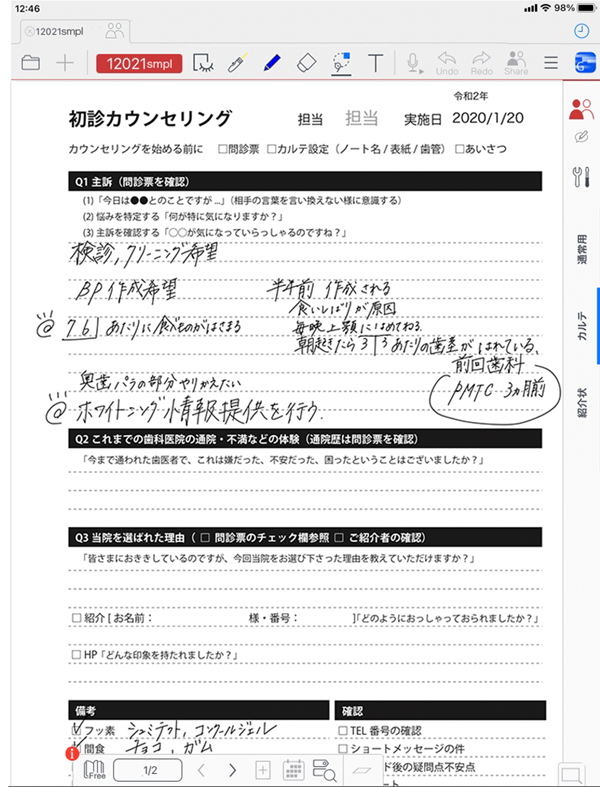 12:46
98%
12021smpl
12021smpl
Undo
Redo
Share
令和2年
初診カウンセリング 担当 担当 実施日 2020/1/20
カウンセリングを始める前に □問診票 □カルテ設定(ノート名/表紙/歯管) □あいさつ
Q1 主訴(問診票を確認)
(1)「今日は●●とのことですが...」(相手の言葉を言い換えない様に意識する)
(2) 悩みを特定する「何が特に気になりますか?」
(3) 主訴を確認する「○○が気になっていらっしゃるのですね?」
検診,クリーニング希望
BP作成希望 半年前 作成される
食いしばりが原因
@ 7 6| あたりに食べものがはさまる 毎晩上顎にはめてねる.
朝起きたら3|3あたりの歯茎がはれている、
前回歯科
奥歯パラの部分やりかえたい
PMTC 3ヵ月前
@ ホワイトニング情報提供を行う.
Q2 これまでの歯科医院の通院・不満などの体験(通院歴は問診票を確認)
「今まで通われた歯医者で、これは嫌だった、不安だった、困ったということはございましたか?」
Q3 当院を選ばれた理由( □ 問診票のチェック欄参照 □ ご紹介者の確認)
「皆さまにおききしているのですが、今回当院をお選び下さった理由を教えていただけますか?」
□ 紹介 [ お名前: 様・番号: ]「どのようにおっしゃっておられましたか?」
□ HP「どんな印象を持たれましたか?」
備考
☑フッ素 シュミテクト, コンクールジェル
☑間食 チョコ, ガム
確認
□ TEL 番号の確認
□ ショートメッセージの件
ド後の疑問点不安点
ート
Free
1/2
通常用
カルテ
紹介状